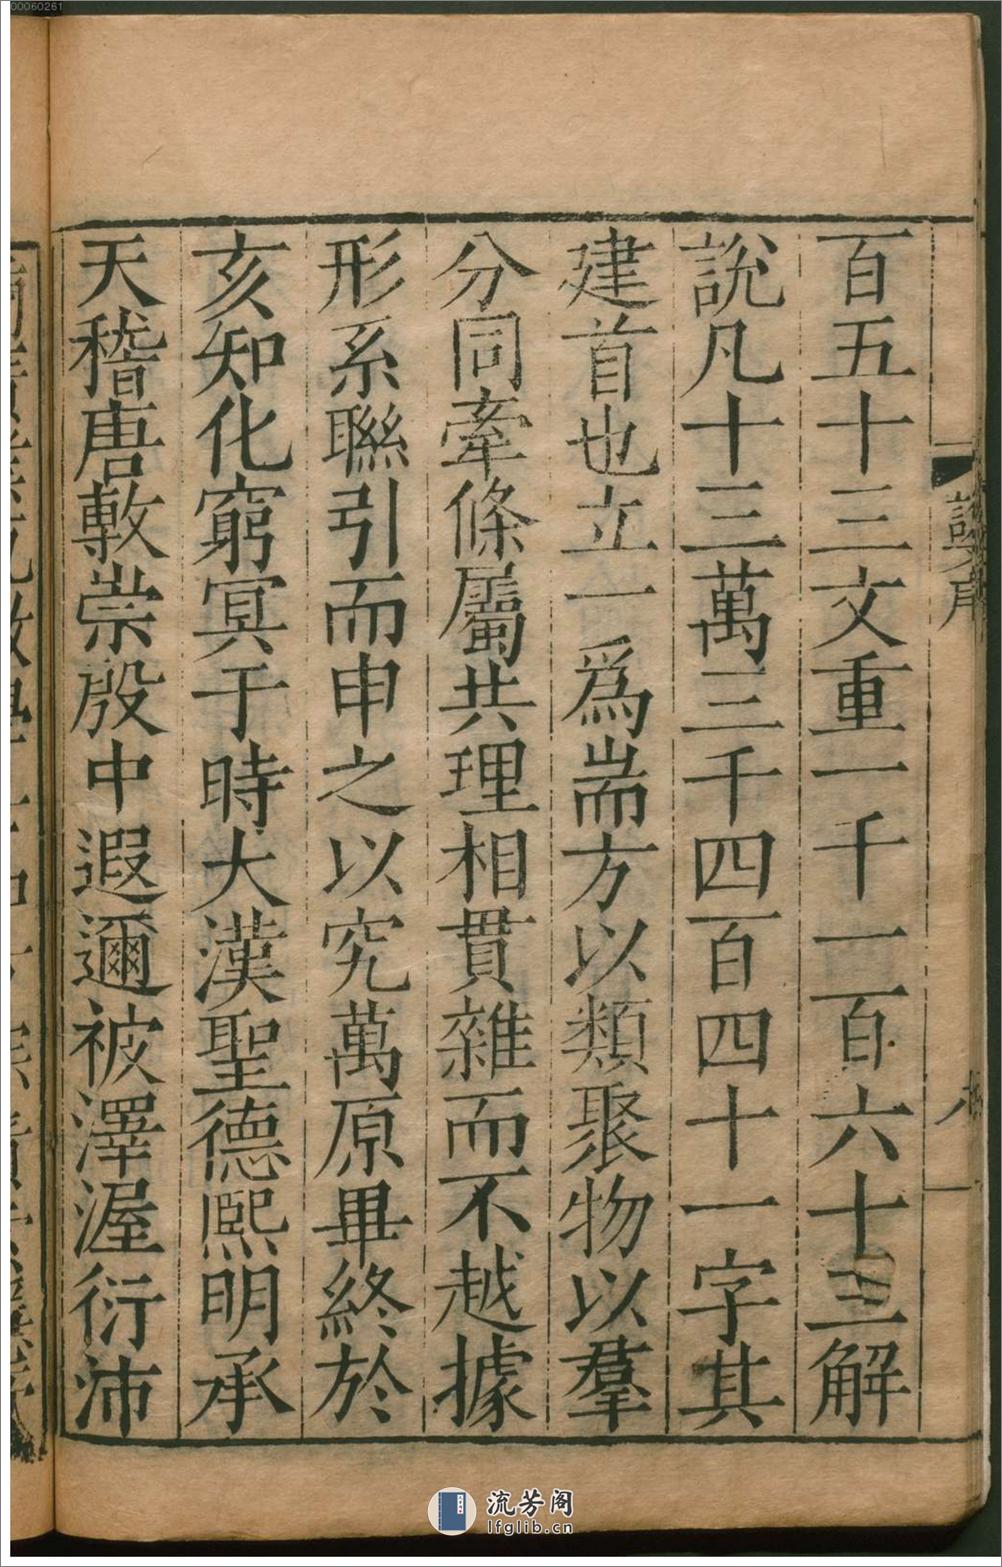 百五十三文重一千一百六十三解
說凡十三萬三千四百四十一字其
建首也立一爲耑方以類聚物以羣
分同牽條屬共理相貫雜而不越據
形系聯引而申之以究萬原畢終於
亥知化窮冥于時大漢聖德熙明承
天稽唐敷崇殷中遐邇被澤渥衍沛
流芳阁
lfglib.cn
00060261